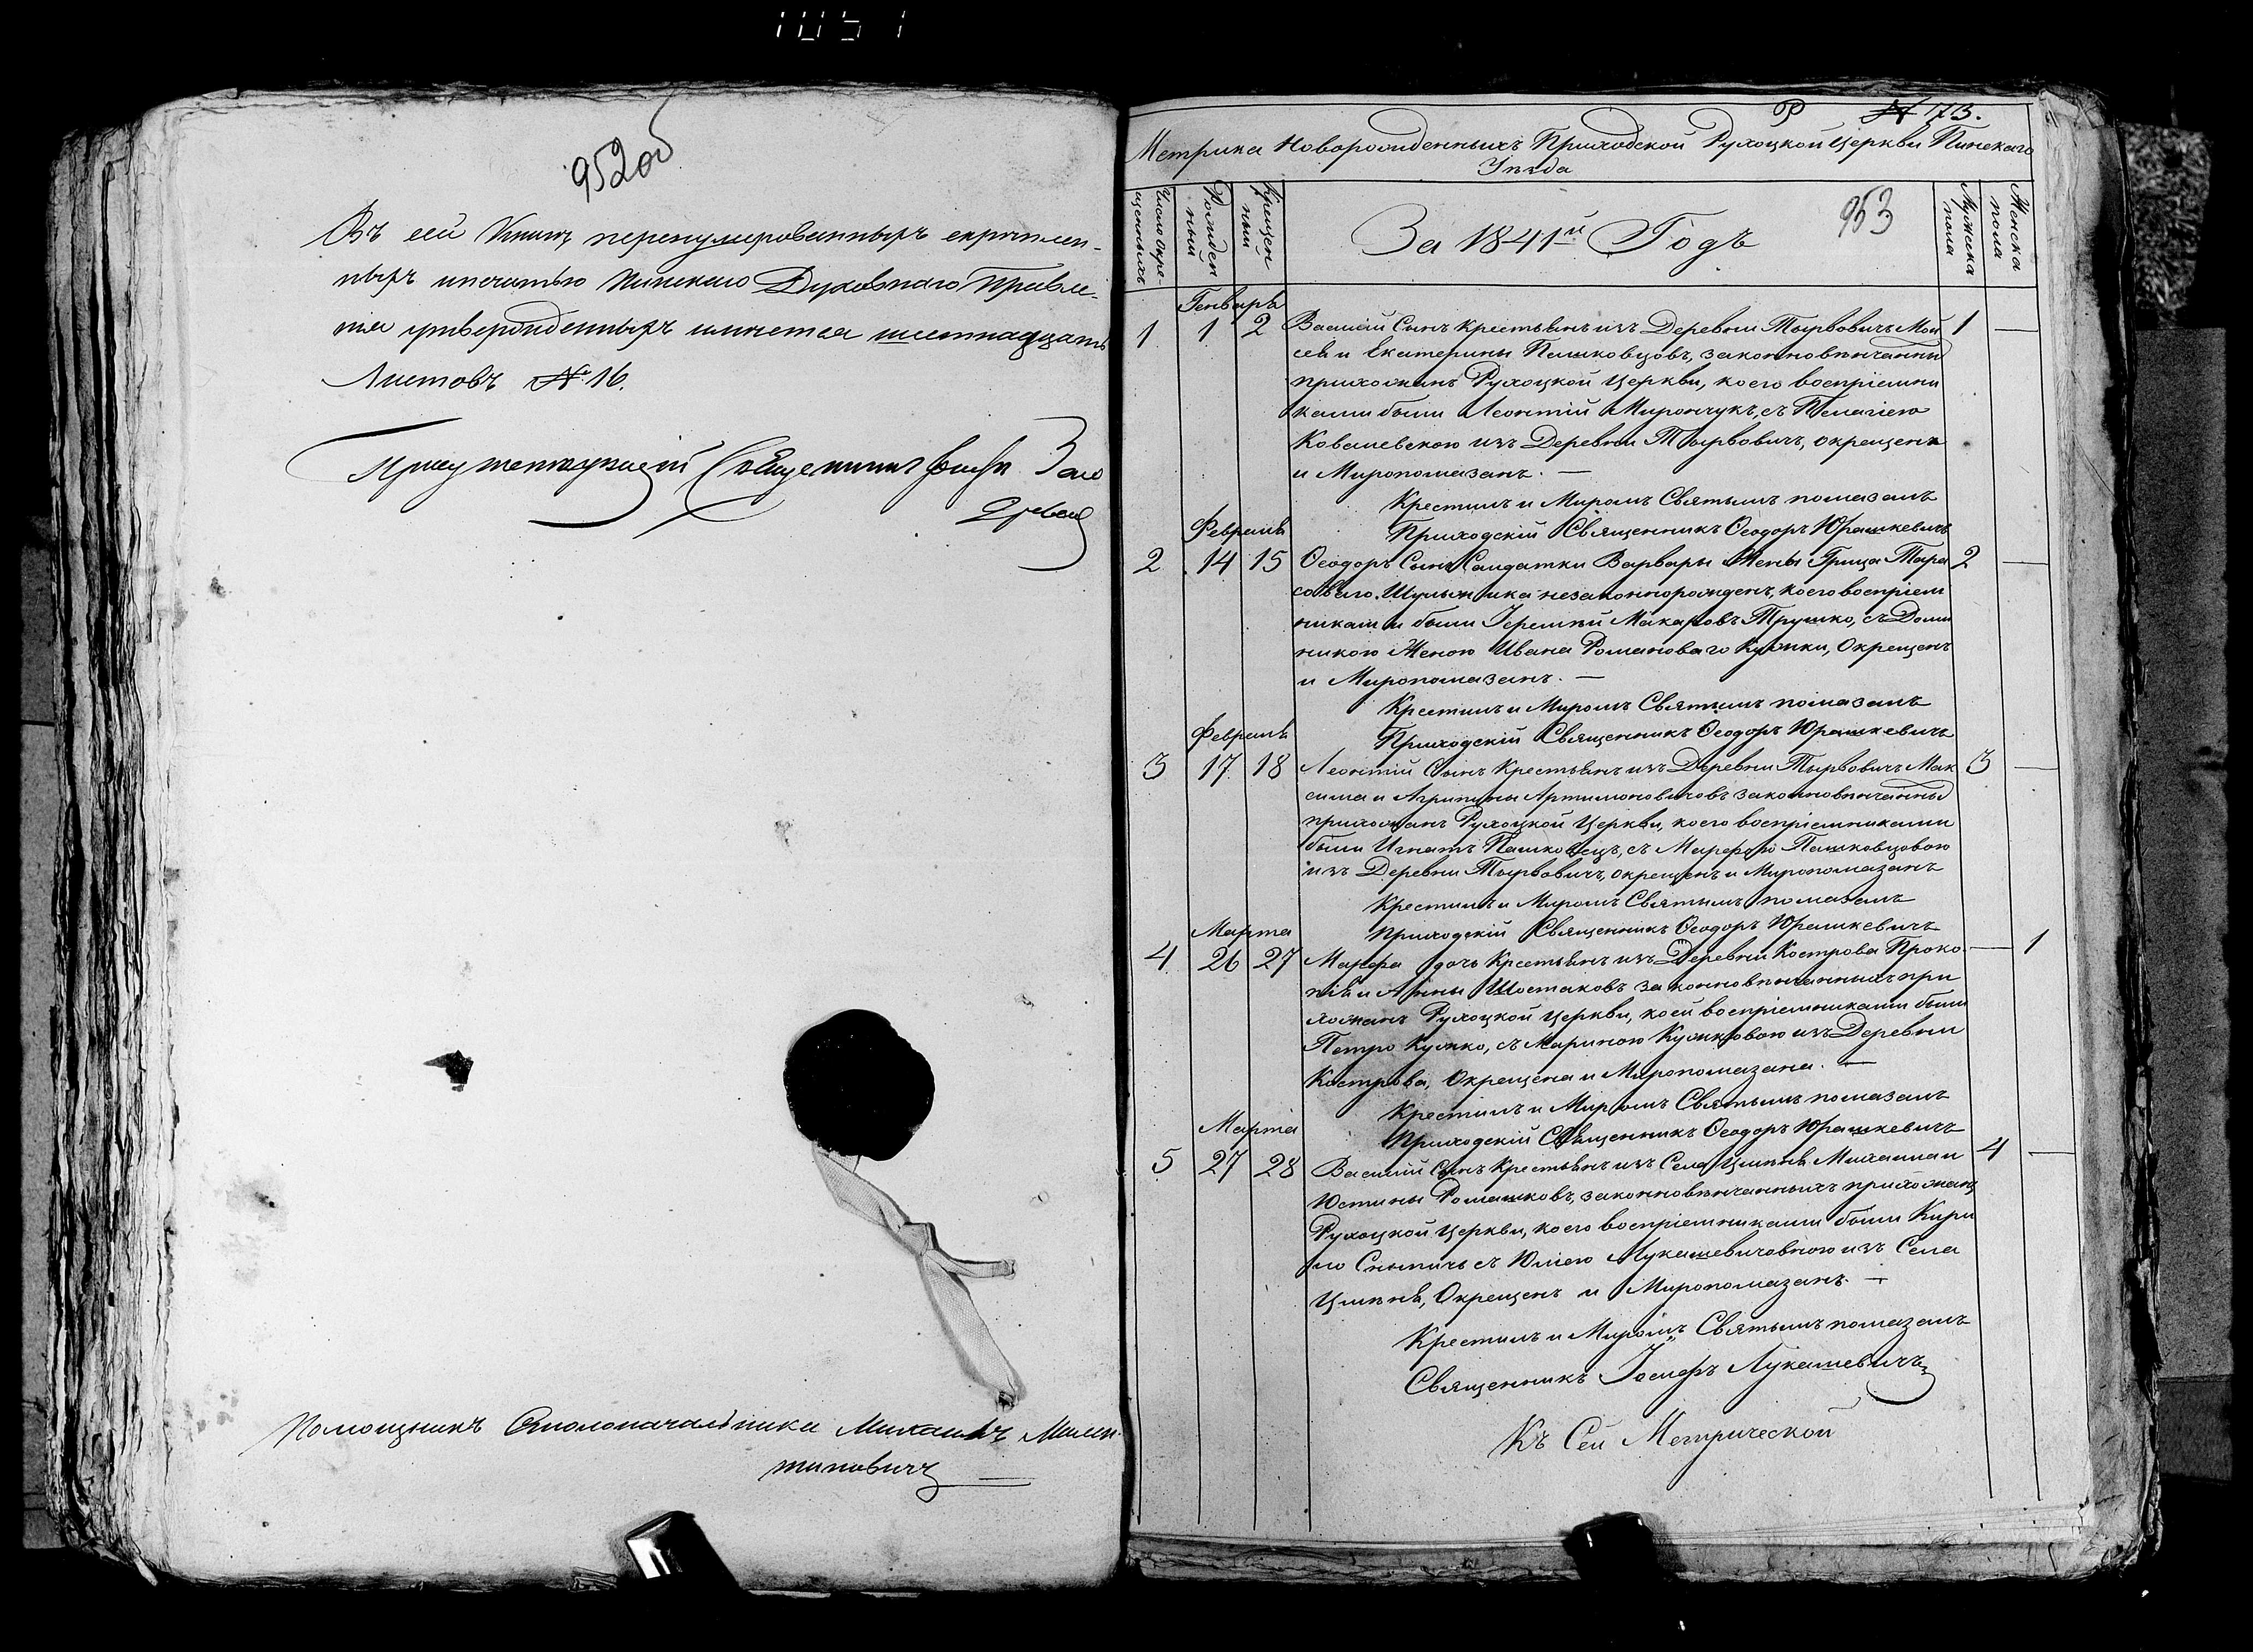 1051
952 об
Въ сей Книгѣ перенумерованныхъ скрѣплен-
ныхъ и печатью Пинскаго Духовнаго Правле-
нія утвержденныхъ имѣется шестнадцать
Листовъ № 16.
Присутствующій Священникъ
Помощникъ Столоначальника Михаилъ
тиновичъ
Р № 173.
Метрика Новорожденныхъ Приходской Рухоцкой Церкви Пинскаго
Уѣзда
Число окре-
щенныхъ
Рожден
ный
Крещен
ный
За 1841й Годъ
953
Мужеска
пола
Женска
пола
Генварь
1 1 2 Василій Сынъ Крестьянъ изъ Деревни Тырвовичъ Мои 1 —
сея и Екатерины Пашковцовъ, законновѣнчанны
прихожанъ Рухоцкой Церкви, коего воспріемни
ками были Леонтій Мирончукъ, съ Пелагіею
Ковалевскою изъ Деревни Тырвовичъ, окрещенъ
и Миропомазанъ. —
Крестилъ и Миромъ Святымъ помазалъ
Приходскій Священникъ Ѳеодоръ Юрашкевичъ
Февраля
2 14 15 Ѳеодоръ Сынъ Салдатки Варвары Жены Грица Тара 2 —
соваго незаконнорожденъ, коего воспріем
никами были Іеремѣй Макаровъ Трушко, съ Доми
никою Женою Ивана Романоваго Кужки, Окрещенъ
и Миропомазанъ. —
Крестилъ и Миромъ Святымъ помазалъ
Приходскій Священникъ Ѳеодоръ Юрашкевичъ
Февраля
3 17 18 Леонтій Сынъ Крестьянъ изъ Деревни Тырвовичъ Мак 3 —
сима и Агрипины Артимоновичовъ законновѣнчанны
прихожанъ Рухоцкой Церкви, коего воспріемниками
были Игнатъ Пашковецъ, съ Марфою Пашковцовою
изъ Деревни Тырвовичъ, окрещенъ и Миропомазанъ
Крестилъ и Миромъ Святымъ помазалъ
Приходскій Священникъ Ѳеодоръ Юрашкевичъ
Марта
4 26 27 Марфа дочь Крестьянъ изъ Деревни Кострова Проко- — 1
пія и Анны Шостаковъ законновѣнчанныхъ при
хожанъ Рухоцкой Церкви, коей воспріемниками были
Петро Кужко, съ Мариною Кужковою изъ Деревни
Кострова, Окрещена и Миропомазана. —
Крестилъ и Миромъ Святымъ помазалъ
Приходскій Священникъ Ѳеодоръ Юрашкевичъ
Марта
5 27 28 Василій Сынъ Крестьянъ изъ Села Цмѣня Михаила и 4 —
Юстины Ромашковъ, законновѣнчанныхъ прихожанъ
Рухоцкой Церкви, коего воспріемниками были Кири
ло Сныпичъ съ Юліею Лукашевичовною изъ Села
Цмѣня, Окрещенъ и Миропомазанъ. —
Крестилъ и Миромъ Святымъ помазалъ
Священникъ Іосифъ Лукашевичъ
Къ Сей Метрической